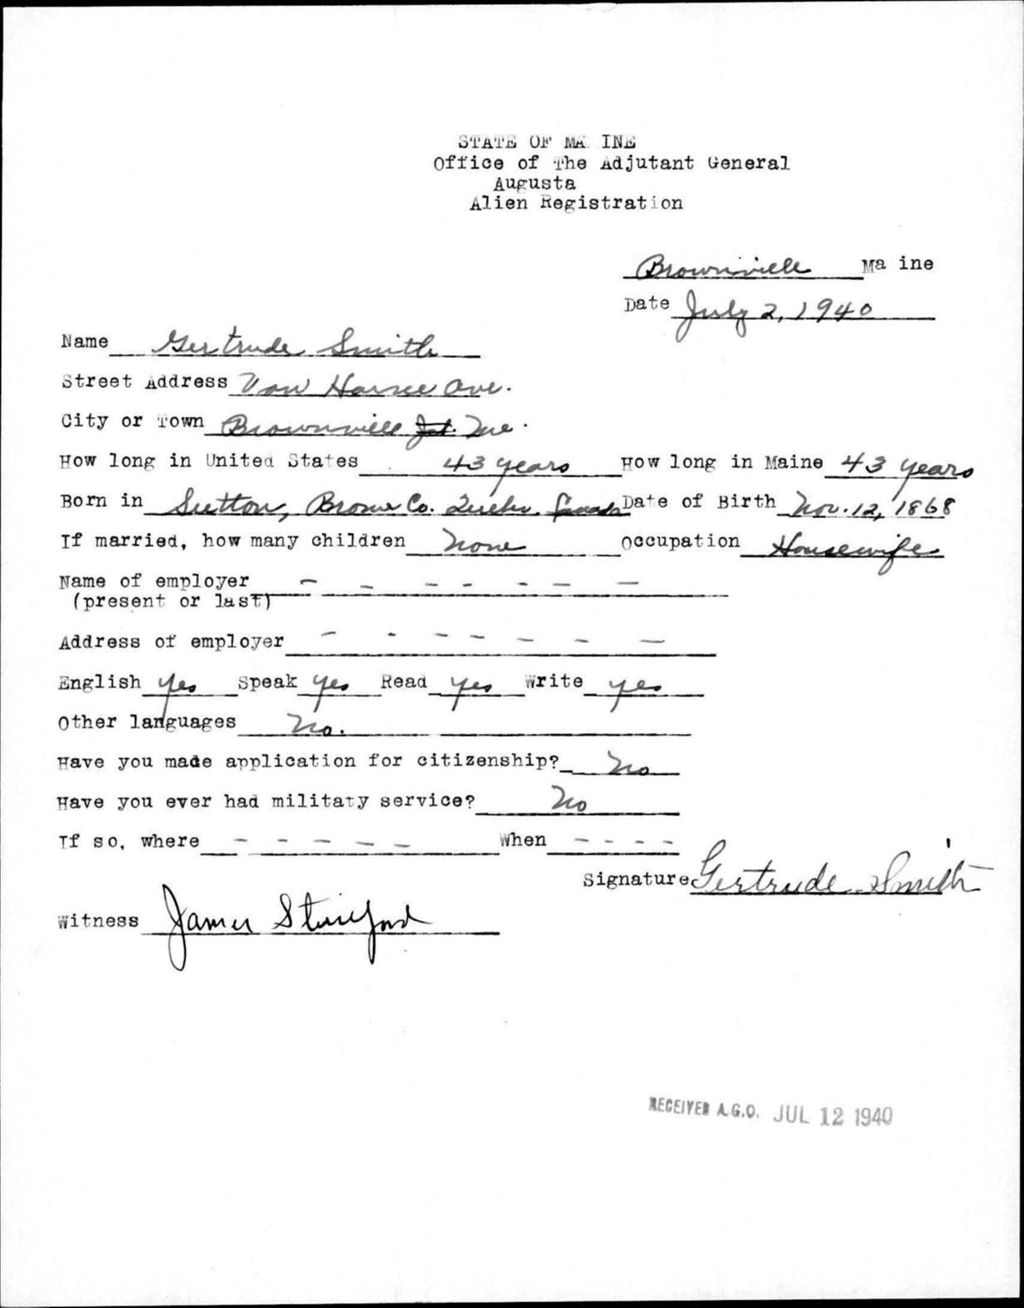 STATE OF MAINE
Office of The Adjutant General
Augusta
Alien Registration
Brownville Maine
Date July 2, 1940
Name Gertrude Smith
Street Address Van Horne Ave.
City or Town Brownville Jct. Me.
How long in United States 43 years How long in Maine 43 years
Born in Sutton, Brome Co. Quebec Canada Date of Birth Nov. 12, 1868
If married, how many children None Occupation Housewife
Name of employer - - - - - -
(present or last)
Address of employer - - - - - - -
English Yes Speak Yes Read Yes Write Yes
Other languages No.
Have you made application for citizenship? No
Have you ever had military service? No
If so, where - - - - - When - - - -
Signature Gertrude Smith
Witness James
RECEIVED A.G.O. JUL 12 1940